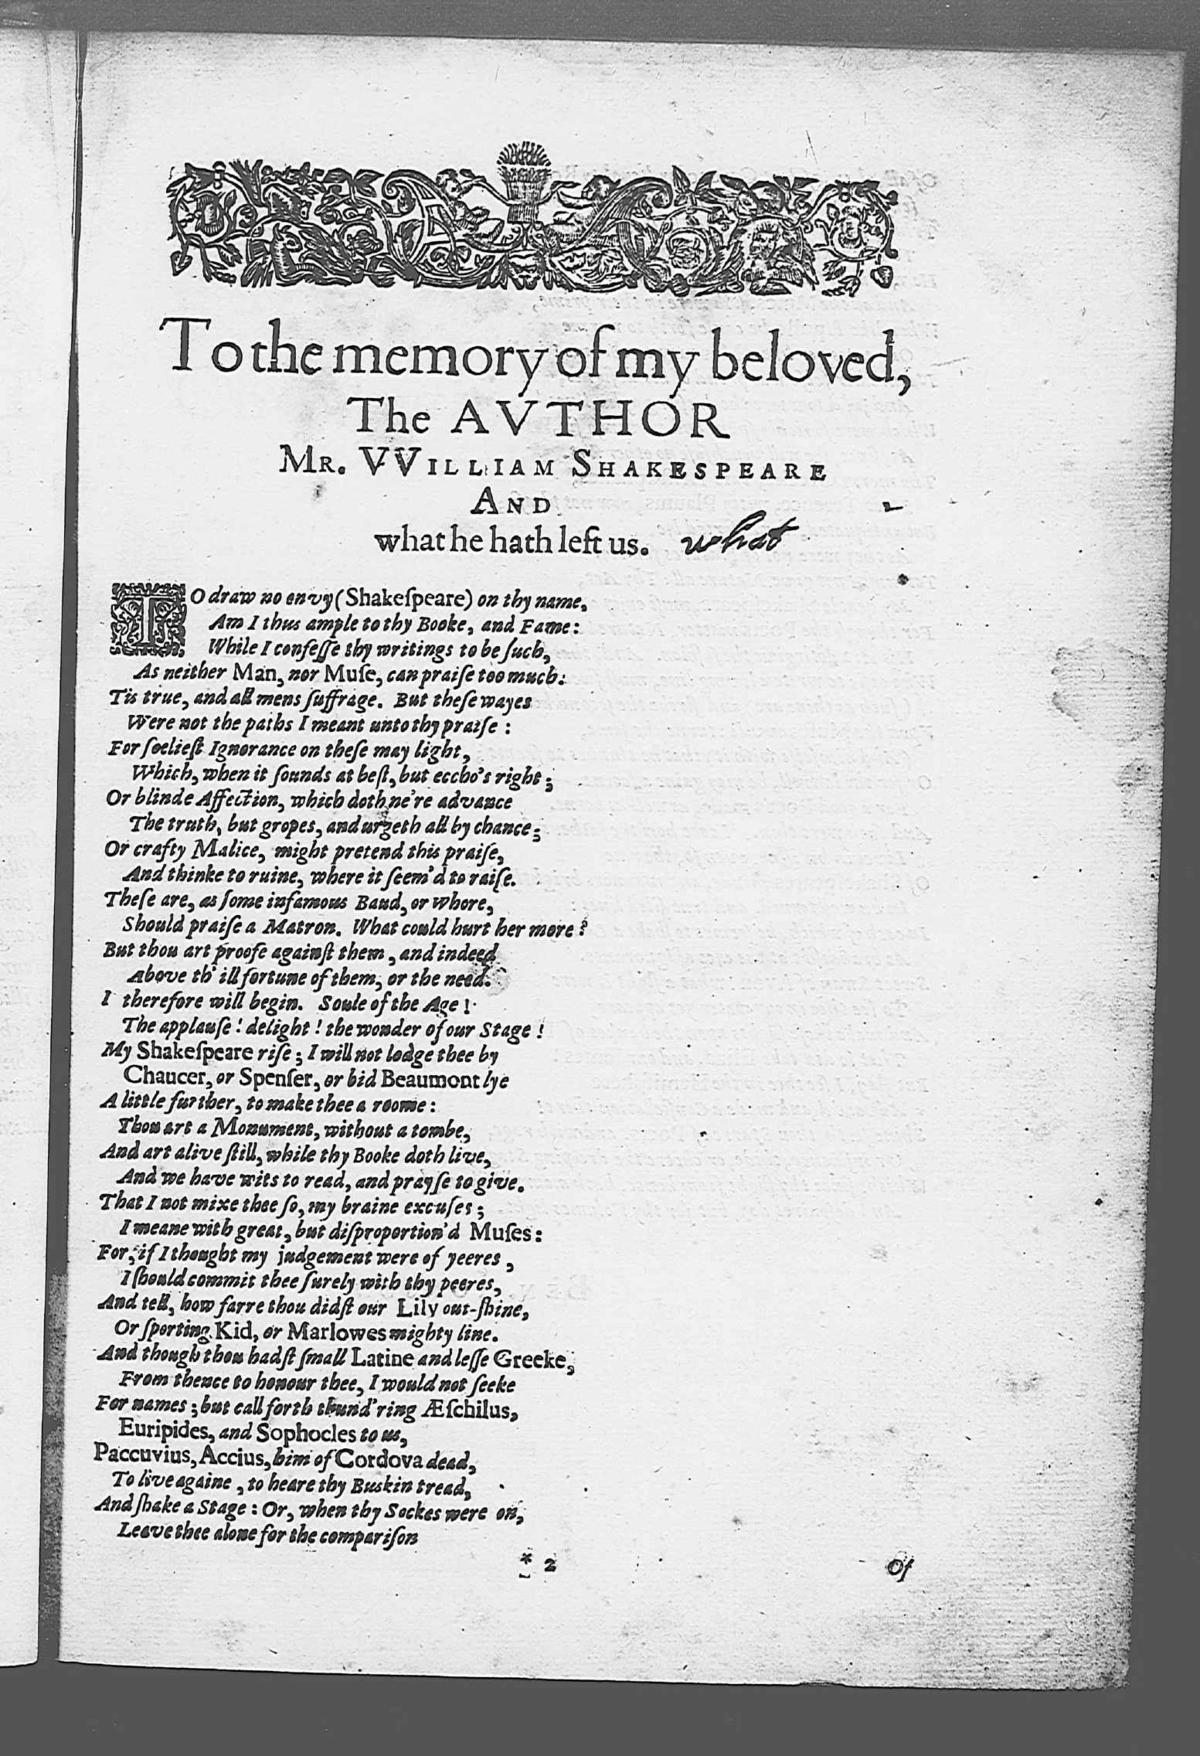 To the memory of my beloved,
The AVTHOR
MR. VVILLIAM SHAKESPEARE
AND
what he hath left us. what
TO draw no envy (Shakeſpeare) on thy name,
Am I thus ample to thy Booke, and Fame:
While I confeſſe thy writings to be ſuch,
As neither Man, nor Muſe, can praiſe too much:
Tis true, and all mens ſuffrage. But theſe wayes
Were not the paths I meant unto thy praiſe:
For ſeelieſt Ignorance on theſe may light,
Which, when it ſounds at beſt, but eccho's right;
Or blinde Affection, which doth ne're advance
The truth, but gropes, and urgeth all by chance;
Or crafty Malice, might pretend this praiſe,
And thinke to ruine, where it ſeem'd to raiſe.
Theſe are, as ſome infamous Baud, or Whore,
Should praiſe a Matron. What could hurt her more?
But thou art proofe againſt them, and indeed
Above th' ill fortune of them, or the need.
I therefore will begin. Soule of the Age!
The applauſe! delight! the wonder of our Stage!
My Shakeſpeare riſe; I will not lodge thee by
Chaucer, or Spenſer, or bid Beaumont lye
A little further, to make thee a roome:
Thou art a Monument, without a tombe,
And art alive ſtill, while thy Booke doth live,
And we have wits to read, and prayſe to give.
That I not mixe thee ſo, my braine excuſes;
I meane with great, but diſproportion'd Muſes:
For, if I thought my judgement were of yeeres,
I ſhould commit thee ſurely with thy peeres,
And tell, how farre thou didſt our Lily out-ſhine,
Or ſporting Kid, or Marlowes mighty line.
And though thou hadſt ſmall Latine and leſſe Greeke,
From thence to honour thee, I would not ſeeke
For names; but call forth thund'ring Æſchilus,
Euripides, and Sophocles to us,
Paccuvius, Accius, him of Cordova dead,
To live againe, to heare thy Buskin tread,
And ſhake a Stage: Or, when thy Sockes were on,
Leave thee alone for the compariſon
* 2 Of